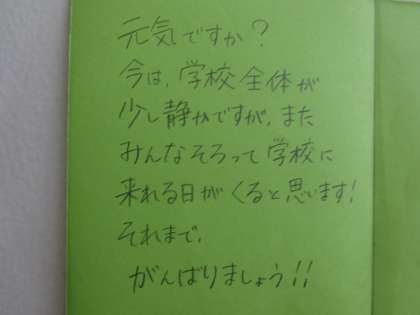 元気ですか?
今は、学校全体が
少し静かですが、また
みんなそろって学校に
来れる日がくると思います!
それまで、
がんばりましょう!!